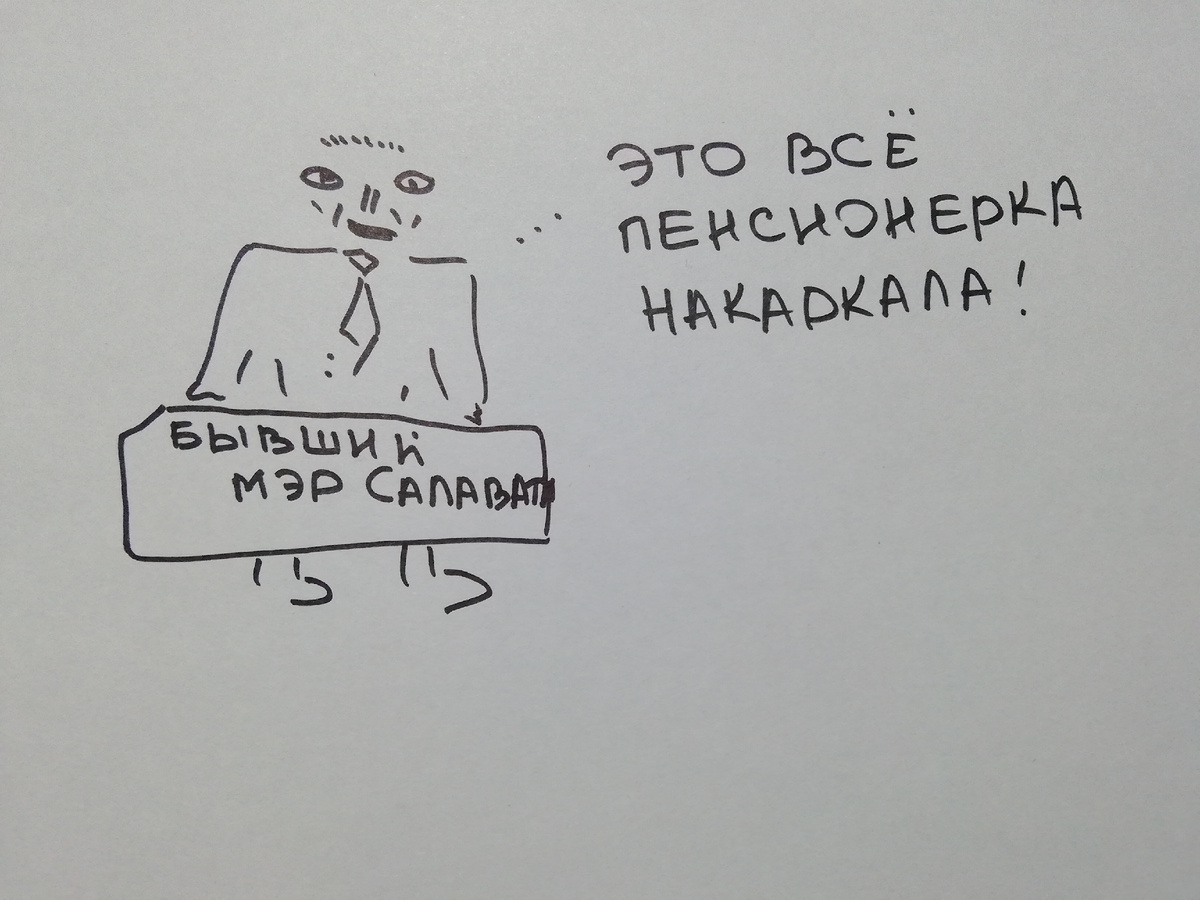 ЭТО ВСЁ
ПЕНСИОНЕРКА
НАКАРКАЛА!
БЫВШИЙ
МЭР САЛАВАТА